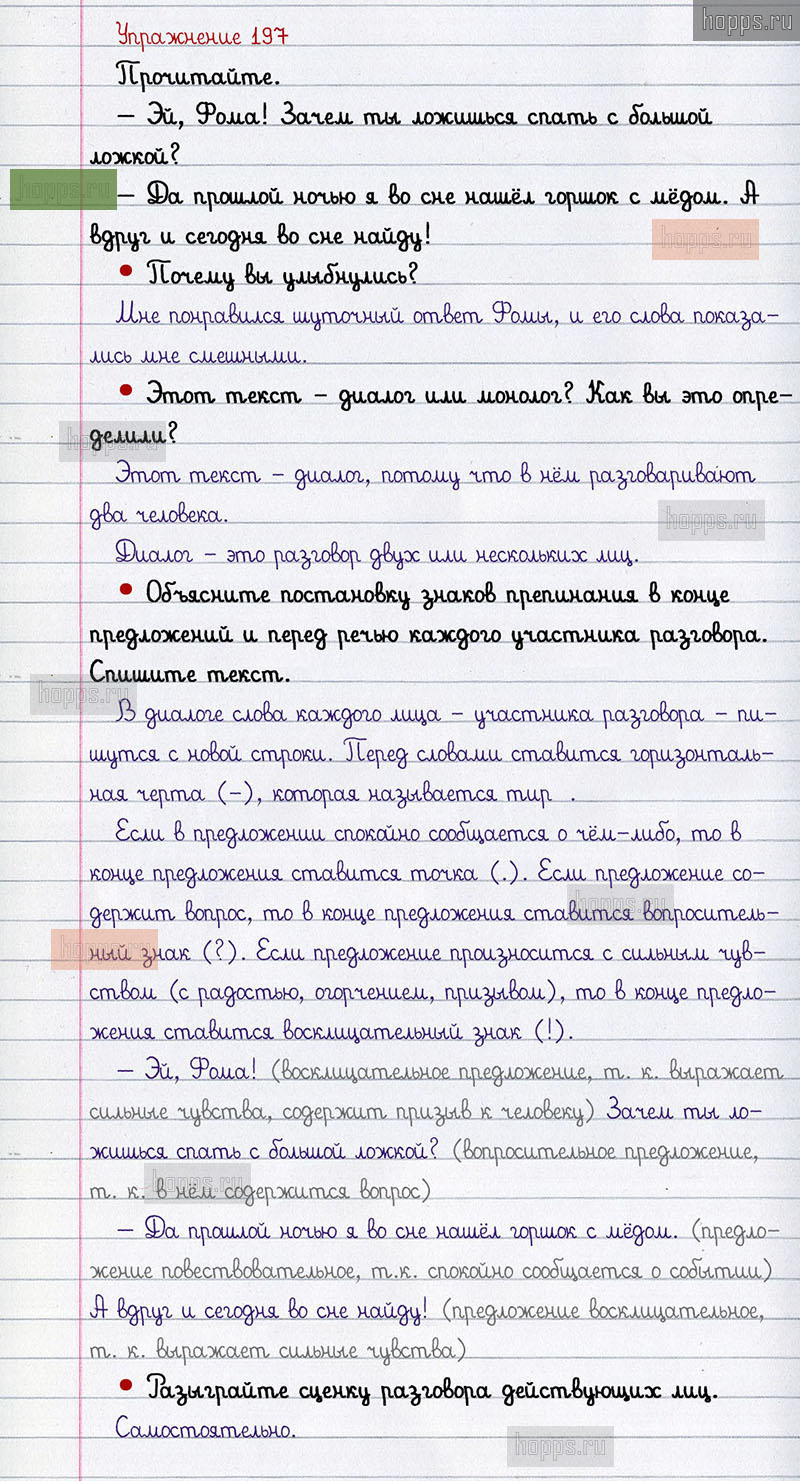 hopps.ru
Упражнение 197
Прочитайте.
— Эй, Фома! Зачем ты ложишься спать с большой
ложкой?
hopps.ru
— Да прошлой ночью я во сне нашёл горшок с мёдом. А
вдруг и сегодня во сне найду!
hopps.ru
• Почему вы улыбнулись?
Мне понравился шуточный ответ Фомы, и его слова показа-
лись мне смешными.
• Этот текст – диалог или монолог? Как вы это опре-
делили?
hopps.ru
Этот текст – диалог, потому что в нём разговаривают
два человека.
hopps.ru
Диалог – это разговор двух или нескольких лиц.
• Объясните постановку знаков препинания в конце
предложений и перед речью каждого участника разговора.
Спишите текст.
hopps.ru
В диалоге слова каждого лица – участника разговора – пи-
шутся с новой строки. Перед словами ставится горизонталь-
ная черта (–), которая называется тир .
Если в предложении спокойно сообщается о чём-либо, то в
конце предложения ставится точка (.). Если предложение со-
держит вопрос, то в конце предложения ставится вопроситель-
hopps.ru
ный знак (?). Если предложение произносится с сильным чув-
hopps.ru
ством (с радостью, огорчением, призывом), то в конце предло-
жения ставится восклицательный знак (!).
— Эй, Фома! (восклицательное предложение, т. к. выражает
сильные чувства, содержит призыв к человеку) Зачем ты ло-
жишься спать с большой ложкой? (вопросительное предложение,
т. к. в нём содержится вопрос)
hopps.ru
— Да прошлой ночью я во сне нашёл горшок с мёдом. (предло-
жение повествовательное, т.к. спокойно сообщается о событии)
А вдруг и сегодня во сне найду! (предложение восклицательное,
т. к. выражает сильные чувства)
• Разыграйте сценку разговора действующих лиц.
Самостоятельно.
hopps.ru